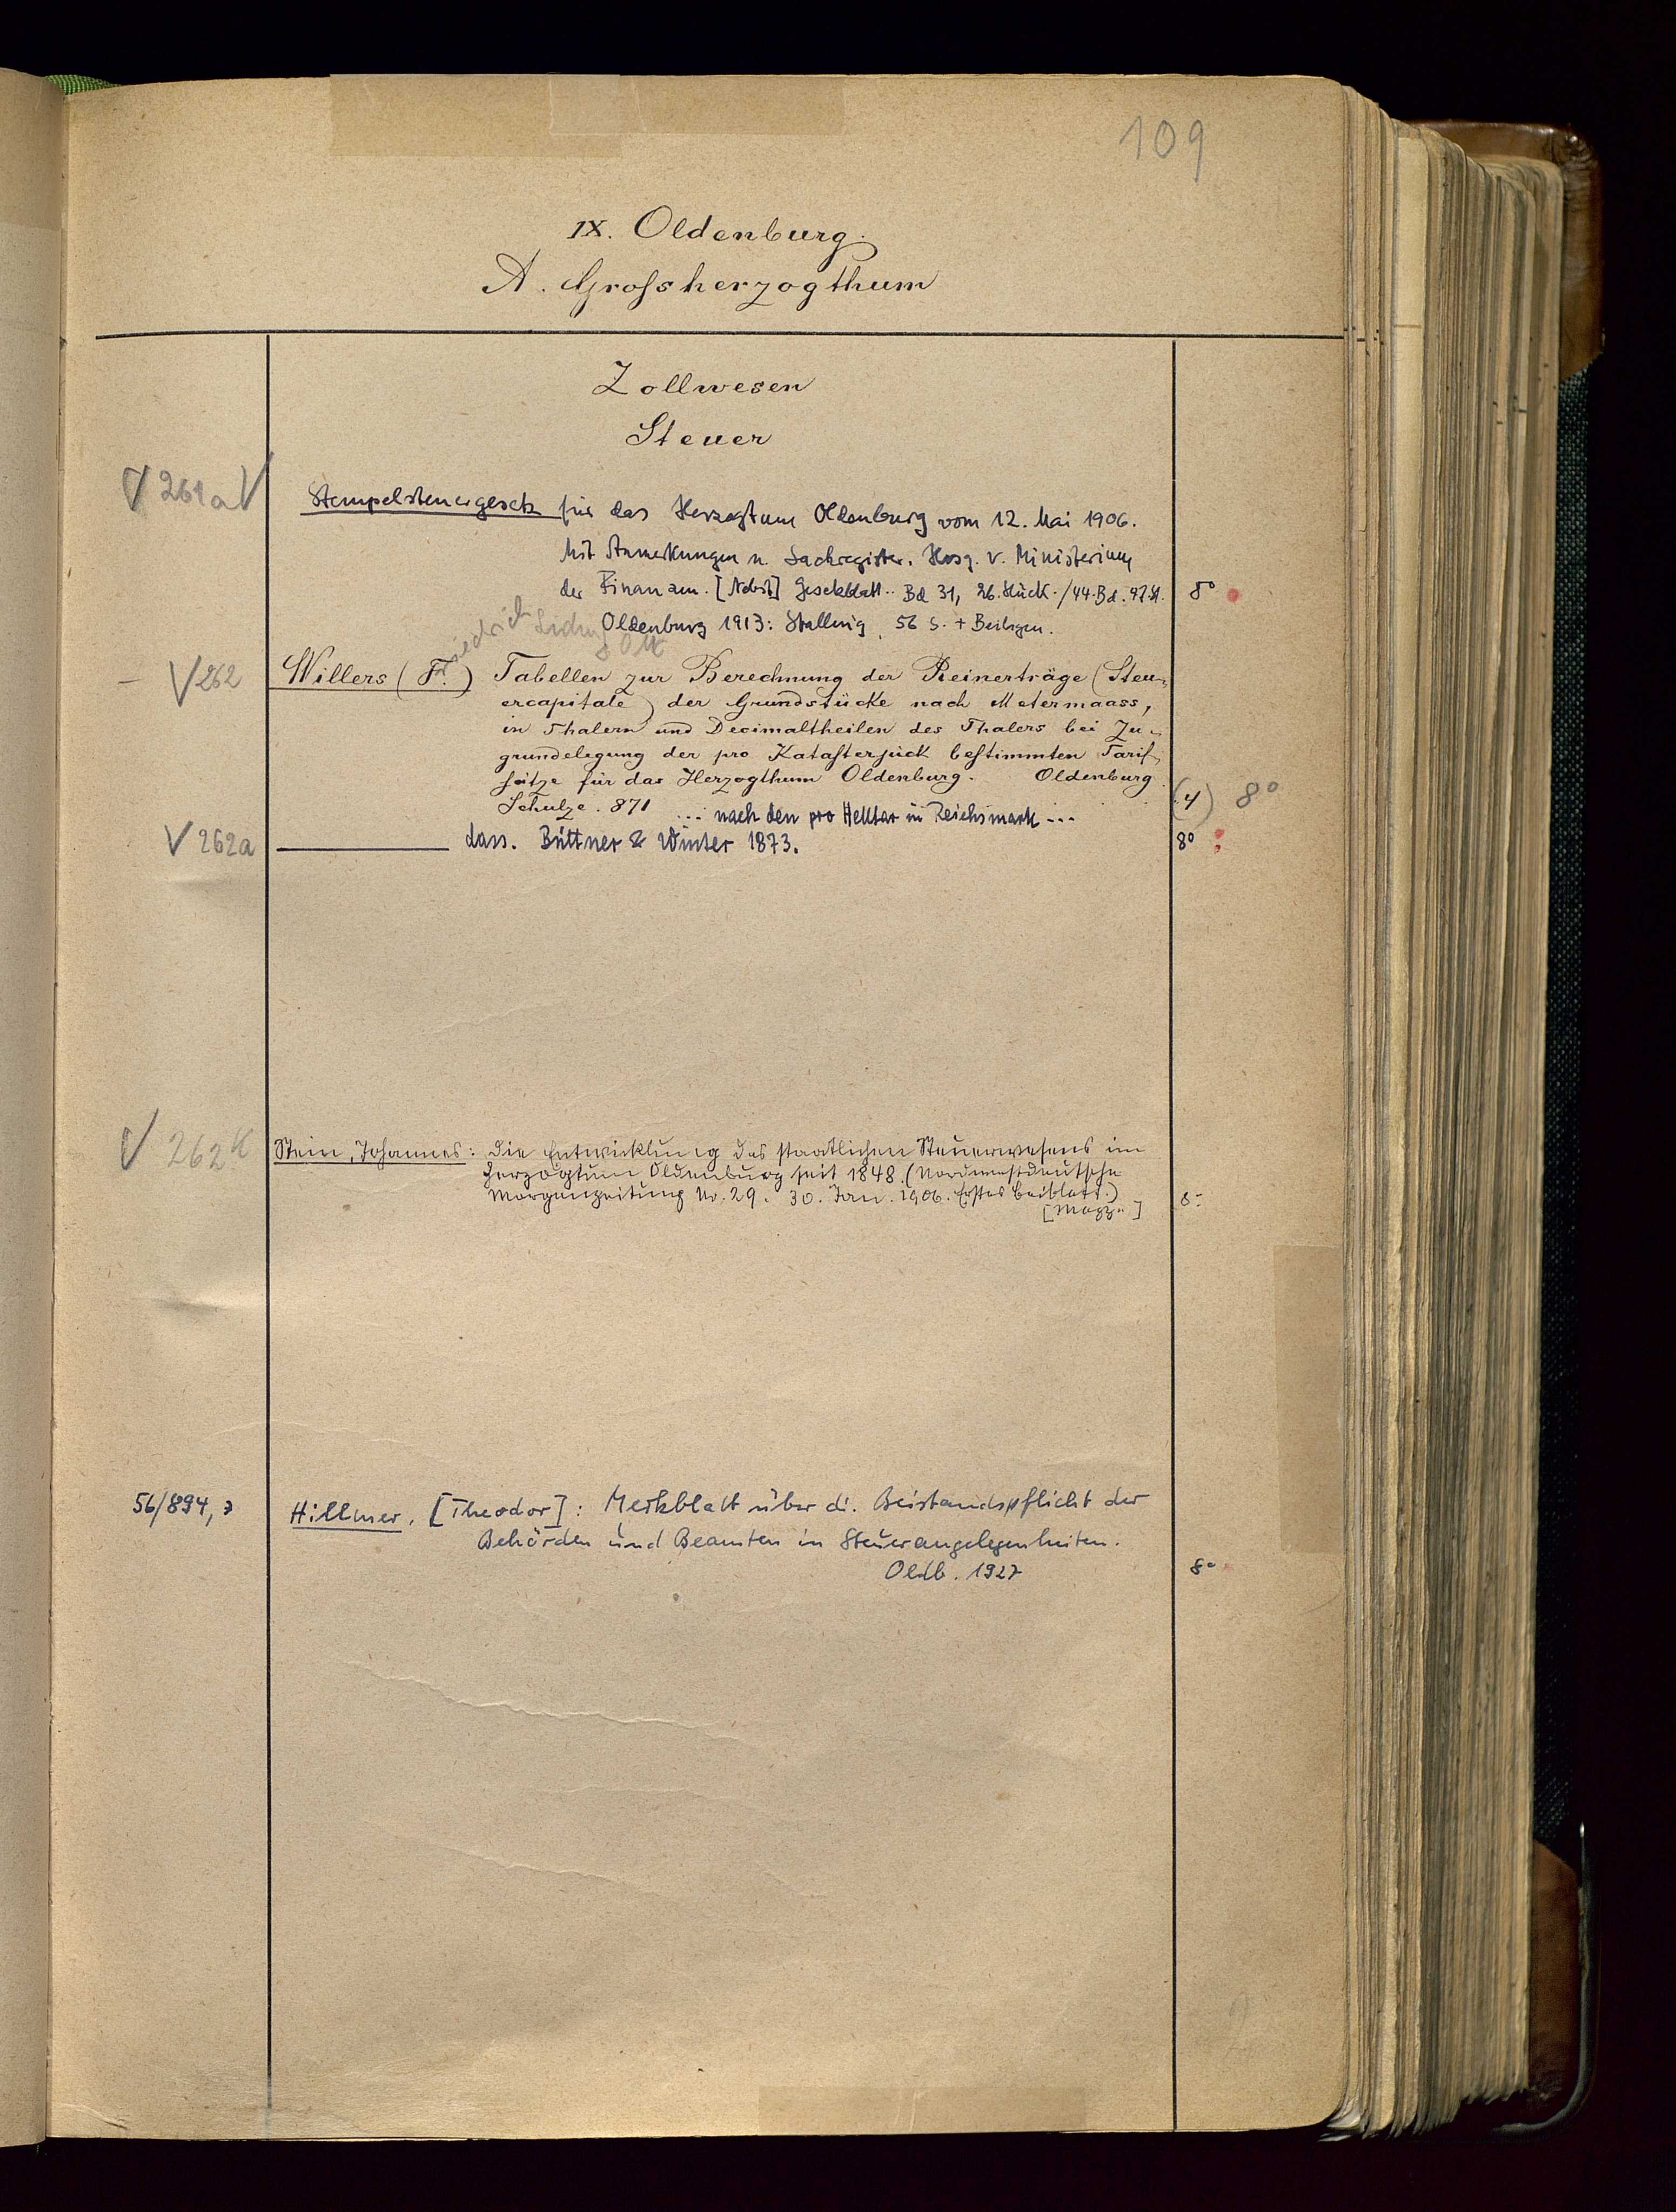 109
IX. Oldenburg.
A. Grossherzogthum
Zollwesen
Steuer
√ 261a √
Stempelsteuergesetz für das Herzogtum Oldenburg vom 12. Mai 1906.
Mit Anmerkungen u. Sachregister. Hrsg. v. Ministerium
der Finanzen. [Nebst] Gesetzblatt.. Bd 31, 26. Stück. / 44. Bd. 97. St. 8°
Oldenburg 1913: Stalling. 56 S. + Beilagen.
Friedrich
– √ 262 Willers (F.) Tabellen zur Berechnung der Reinerträge (Steu-
ercapitale) der Grundstücke nach Metermaass,
in Thalern und Decimaltheilen des Thalers bei Zu-
grundelegung der pro Katasterjück bestimmten Tarif-
sätze für das Herzogthum Oldenburg. Oldenburg
Schulze. 871 (4) 8°
... nach den pro Hektar in Reichsmark ...
√ 262a ——— dass. Büttner & Winter 1873. 8°
√ 262K Stein, Johannes: Die Entwicklung des staatlichen Steuerwesens im
Herzogtum Oldenburg seit 1848. (Nordwestdeutsche
Morgenzeitung Nr. 29. 30. Jan. 1906. Erstes Beiblatt.) 8°
56/894,3 Hillmer, [Theodor]: Merkblatt über di. Beistandspflicht der
Behörden und Beamten in Steuerangelegenheiten.
Oldb. 1927 8°